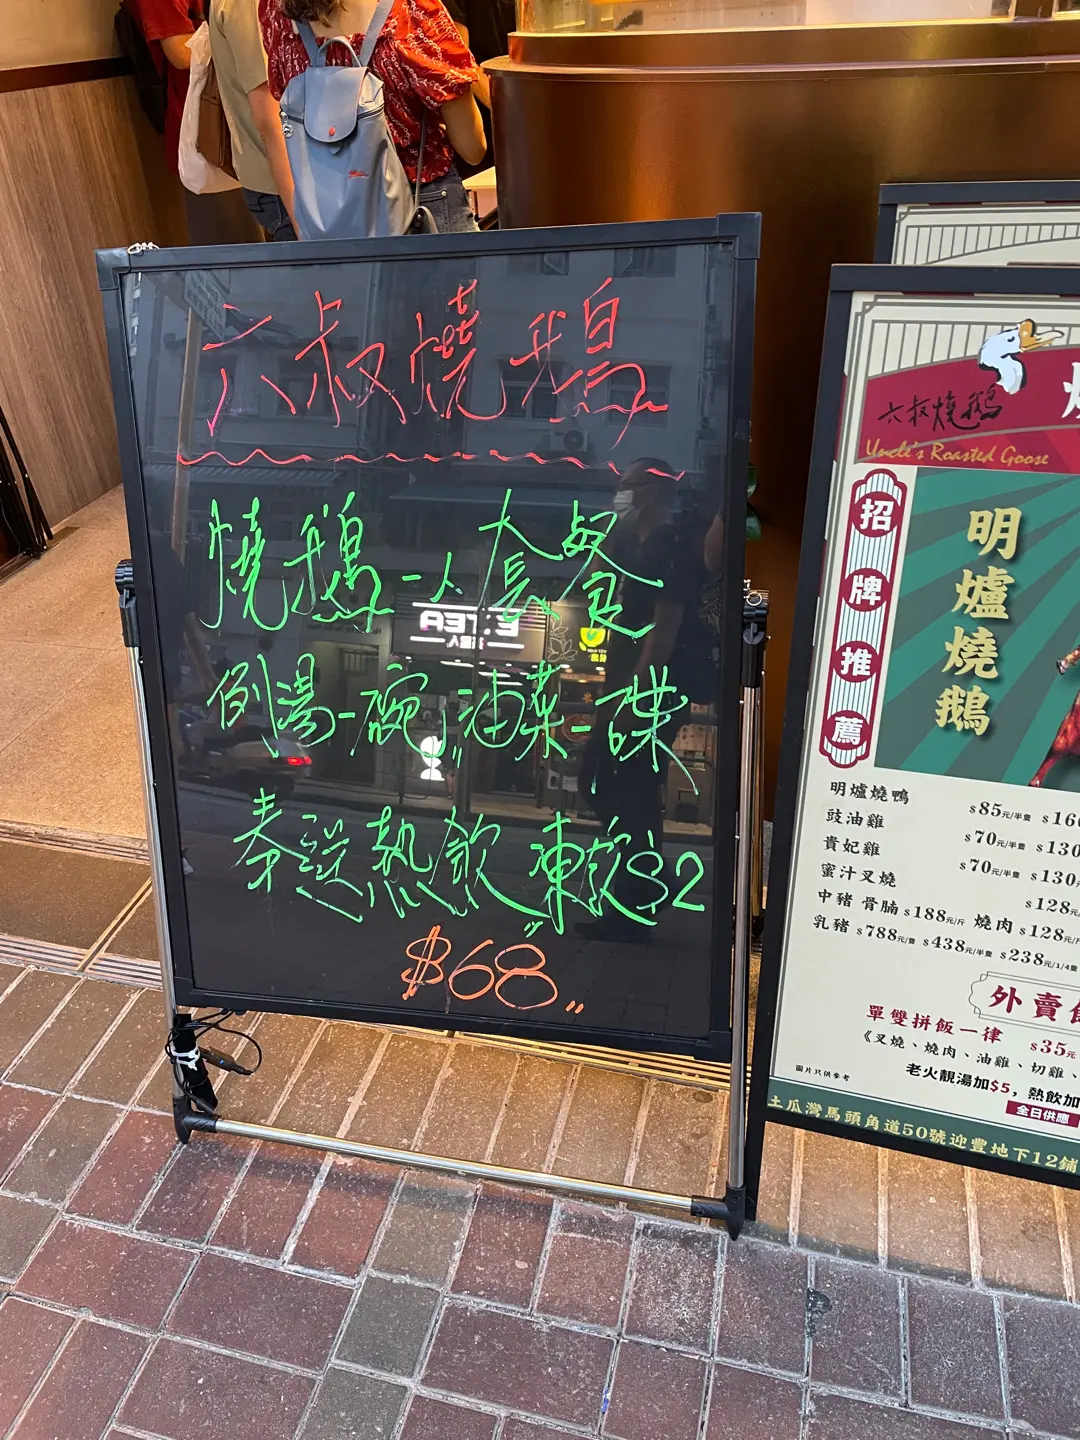 六叔燒鵝
燒鵝一人套餐
例湯一碗，油菜一碟
奉送熱飲，凍飲$2
$68
六叔燒鵝
Uncle's Roasted Goose
招牌推薦
明爐燒鵝
明爐燒鴨 $85元/半隻
豉油雞 $70元/半隻 $130
貴妃雞 $70元/半隻 $130元
蜜汁叉燒 $128元
中豬骨腩 $188元/斤 燒肉 $128元
乳豬 $788元/隻 $438元/半隻 $238元/1/4隻
外賣
單雙拼飯一律 $35元
《叉燒、燒肉、油雞、切雞、
老火靚湯加$5，熱飲加
圖片只供參考
全日供應
土瓜灣馬頭角道50號迎豐地下12鋪